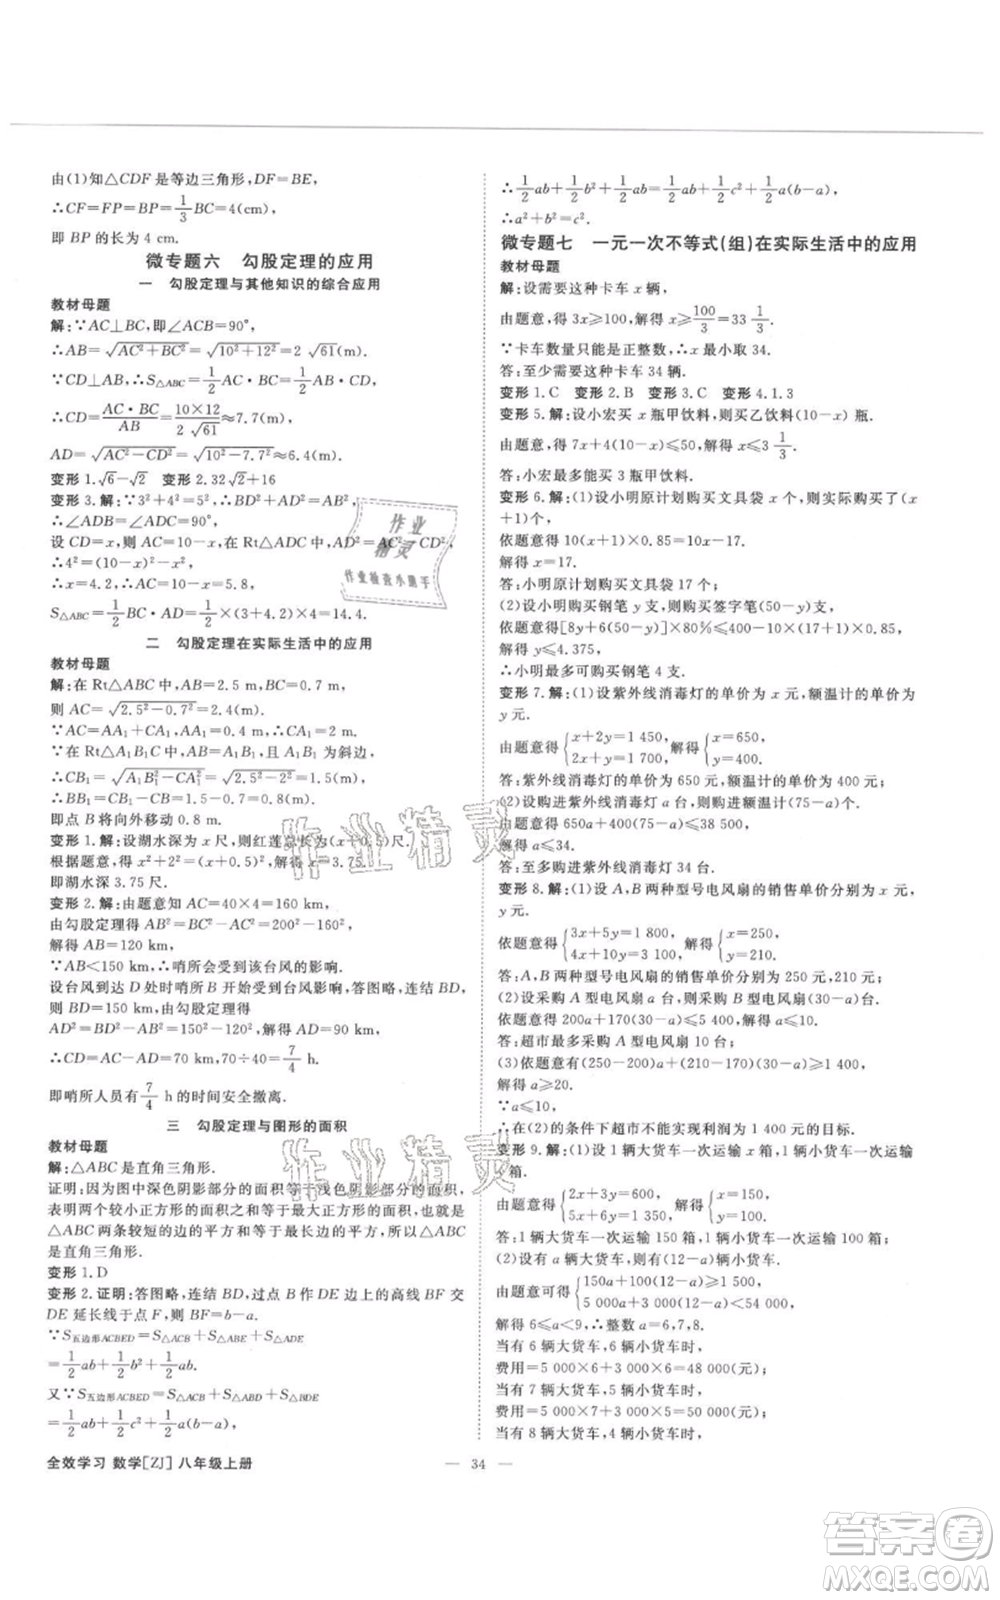 由(1)知△CDF是等边三角形,DF=BE,
∴CF=FP=BP=1/3BC=4(cm),
即 BP 的长为 4 cm.
微专题六 勾股定理的应用
一 勾股定理与其他知识的综合应用
教材母题
解:∵AC⊥BC,即∠ACB=90°,
∴AB=√(AC²+BC²)=√(10²+12²)=2√61(m).
∵CD⊥AB,∴S△ABC=1/2AC·BC=1/2AB·CD,
∴CD=AC·BC/AB=10×12/2√61≈7.7(m),
AD=√(AC²−CD²)=√(10²−7.7²)≈6.4(m).
变形 1.√6−√2 变形 2.32√2+16
变形 3.解:∵3²+4²=5²,∴BD²+AD²=AB²,
∴∠ADB=∠ADC=90°,
设 CD=x,则 AC=10−x,在 Rt△ADC 中,AD²=AC²−CD²,
∴4²=(10−x)²−x²,∴x=4.2,∴AC=10−x=5.8,
S△ABC=1/2BC·AD=1/2×(3+4.2)×4=14.4.
二 勾股定理在实际生活中的应用
教材母题
解:在 Rt△ABC 中,AB=2.5 m,BC=0.7 m,
则 AC=√(2.5²−0.7²)=2.4(m).
∵AC=AA₁+CA₁,AA₁=0.4 m,∴CA₁=2 m.
∵在 Rt△A₁B₁C 中,AB=A₁B₁,且 A₁B₁ 为斜边,
∴CB₁=√(A₁B₁²−CA₁²)=√(2.5²−2²)=1.5(m).
∴BB₁=CB₁−CB=1.5−0.7=0.8(m).
即点 B 将向外移动 0.8 m.
变形 1.解:设湖水深为 x 尺,则红莲总长为(x+0.5)尺.
根据题意,得 x²+2²=(x+0.5)²,解得 x=3.75.
即湖水深 3.75 尺.
变形 2.解:由题意知 AC=40×4=160 km,
由勾股定理得 AB²=BC²−AC²=200²−160²,
解得 AB=120 km,
∵AB<150 km,∴哨所会受到该台风的影响.
设台风到达 D 点时哨所 B 开始受台风影响,答图略,连结 BD,
则 BD=150 km,由勾股定理得
AD²=BD²−AB²=150²−120²,解得 AD=90 km,
∴CD=AC−AD=70 km,70÷40=7/4 h.
即哨所人员有 7/4 h 的时间安全撤离.
三 勾股定理与图形的面积
教材母题
解:△ABC 是直角三角形.
证明:因为图中深色阴影部分的面积等于浅色阴影部分的面积,
说明两个较小正方形的面积和等于最大正方形的面积,也就是
△ABC 两条较短的边的平方和等于最长边的平方,所以△ABC
是直角三角形.
变形 1.D
变形 2.证明:答图略,连结 BD,过点 B 作 DE 边上的高线 BF 交
DE 延长线于点 F,则 BF=b−a.
∵S五边形ACBED=S△ACB+S△ABE+S△ADE
=1/2ab+1/2b²+1/2ab,
又∵S五边形ACBED=S△ACB+S△ABD+S△BDE
=1/2ab+1/2c²+1/2a(b−a),
全效学习 数学[ZJ] 八年级上册
∴1/2ab+1/2b²+1/2ab=1/2ab+1/2c²+1/2a(b−a),
∴a²+b²=c².
微专题七 一元一次不等式(组)在实际生活中的应用
教材母题
解:设需要这种卡车 x 辆,
由题意,得 3x≥100,解得 x≥100/3=33 1/3.
∵卡车数量只能是正整数,∴x 最小取 34.
答:至少需要这种卡车 34 辆.
变形 1.C 变形 2.B 变形 3.C 变形 4.1.3
变形 5.解:设小宏买 x 瓶甲饮料,则买乙饮料(10−x)瓶.
由题意,得 7x+4(10−x)≤50,解得 x≤3 1/3.
答:小宏最多能买 3 瓶甲饮料.
变形 6.解:(1)设小明原计划购买文具袋 x 个,则实际购买了(x
+1)个.
依题意得 10(x+1)×0.85=10x−17,
解得 x=17.
答:小明原计划购买文具袋 17 个;
(2)设小明可购买钢笔 y 支,则购买签字笔(50−y)支,
依题意得[8y+6(50−y)]×80%≤400−10×(17+1)×0.85,
解得 y≤4.375,
∴小明最多可购买钢笔 4 支.
变形 7.解:(1)设紫外线消毒灯的单价为 x 元,额温计的单价为
y 元.
由题意得{x+2y=1 450, 2x+y=1 700, 解得{x=650, y=400.
答:紫外线消毒灯的单价为 650 元,额温计的单价为 400 元;
(2)设购进紫外线消毒灯 a 台,则购进额温计(75−a)个.
由题意得 650a+400(75−a)≤38 500,
解得 a≤34.
答:至多购进紫外线消毒灯 34 台.
变形 8.解:(1)设 A,B 两种型号电风扇的销售单价分别为 x 元、
y 元.
依题意得{3x+5y=1 800, 4x+10y=3 100, 解得{x=250, y=210.
答:A,B 两种型号电风扇的销售单价分别为 250 元,210 元;
(2)设采购 A 型电风扇 a 台,则采购 B 型电风扇(30−a)台.
依题意得 200a+170(30−a)≤5 400,解得 a≤10.
答:超市最多采购 A 型电风扇 10 台;
(3)依题意有(250−200)a+(210−170)(30−a)≥1 400,
解得 a≥20.
∵a≤10,
∴在(2)的条件下超市不能实现利润为 1 400 元的目标.
变形 9.解:(1)设 1 辆大货车一次运输 x 箱,1 辆小货车一次运输
y 箱.
由题意得{2x+3y=600, 5x+6y=1 350, 解得{x=150, y=100.
答:1 辆大货车一次运输 150 箱,1 辆小货车一次运输 100 箱;
(2)设有 a 辆大货车,则有(12−a)辆小货车.
由题意可得{150a+100(12−a)≥1 500, 5 000a+3 000(12−a)<54 000.
解得 6≤a<9,∴整数 a=6,7,8.
当有 6 辆大货车,6 辆小货车时,
费用=5 000×6+3 000×6=48 000(元);
当有 7 辆大货车,5 辆小货车时,
费用=5 000×7+3 000×5=50 000(元);
当有 8 辆大货车,4 辆小货车时,
费用=5 000×8+3 000×4=52 000(元);
— 34 —
作业精灵
作业检查小帮手
作业精灵
作业精灵
答案圈
MXQE.COM